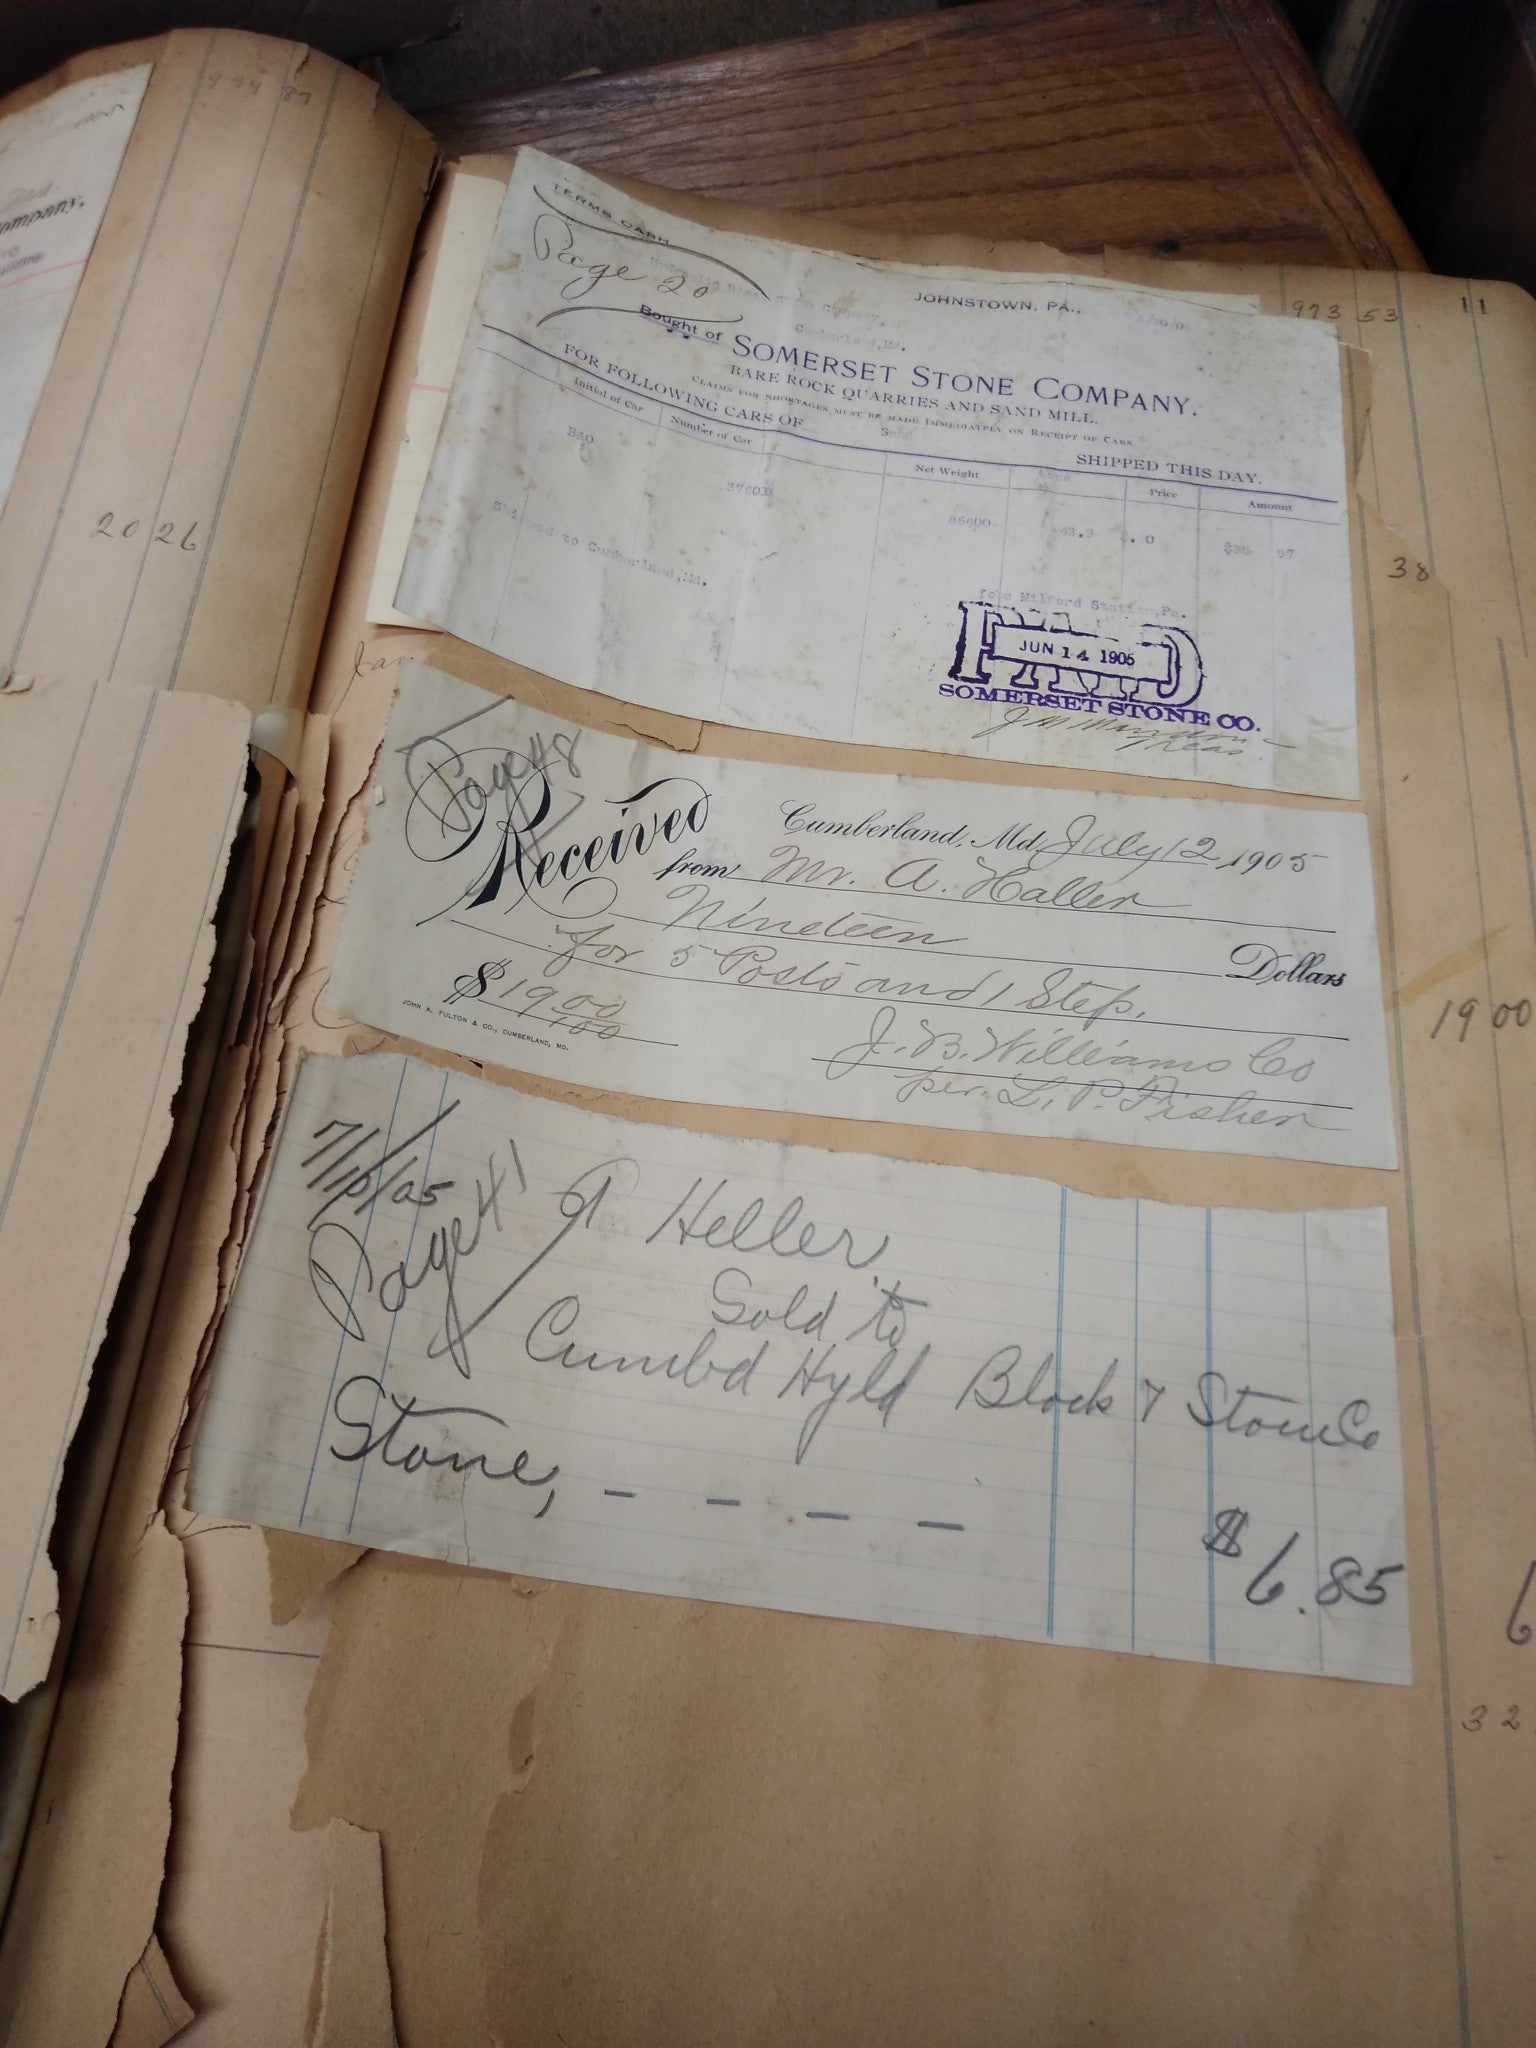 994 87
ompany,
2026
11
973 53
38
19 00
6
32
TERMS CASH
Page 20
Company,
Cumberland, Md.
JOHNSTOWN, PA.,
Bought of SOMERSET STONE COMPANY.
BARE ROCK QUARRIES AND SAND MILL.
CLAIMS FOR SHORTAGES MUST BE MADE IMMEDIATELY ON RECEIPT OF CARS.
FOR FOLLOWING CARS OF Sand SHIPPED THIS DAY.
Initial of Car Number of Car Net Weight Price Amount
B&O 86600 43.3 97
Shipped to Cumberland, Md.
fobc Milford Station, Pa.
PAID
JUN 14 1905
SOMERSET STONE CO.
Treas
Jan
Page 48
Received
Cumberland, Md. July 12 1905
from Mr. A. Haller
Nineteen Dollars
for 5 Posts and 1 Step.
$19.00/100
J. B. Williams Co
per. L. P. Fisher
JOHN A. FULTON & CO., CUMBERLAND, MD.
7/10/05
Page 41
A Heller
Sold to
Cumbd Hyld Block & Stone Co
Stone, - - - -
$6.85